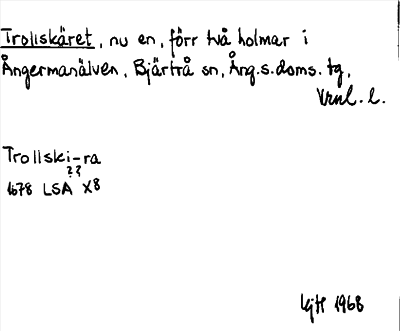 Trollskäret, nu en, förr två holmar i
Ångermanälven, Bjärtrå sn, Ång.s.doms. tg,
Vrnl. l.
Trollski-ra
??
1678 LSA X8
1968